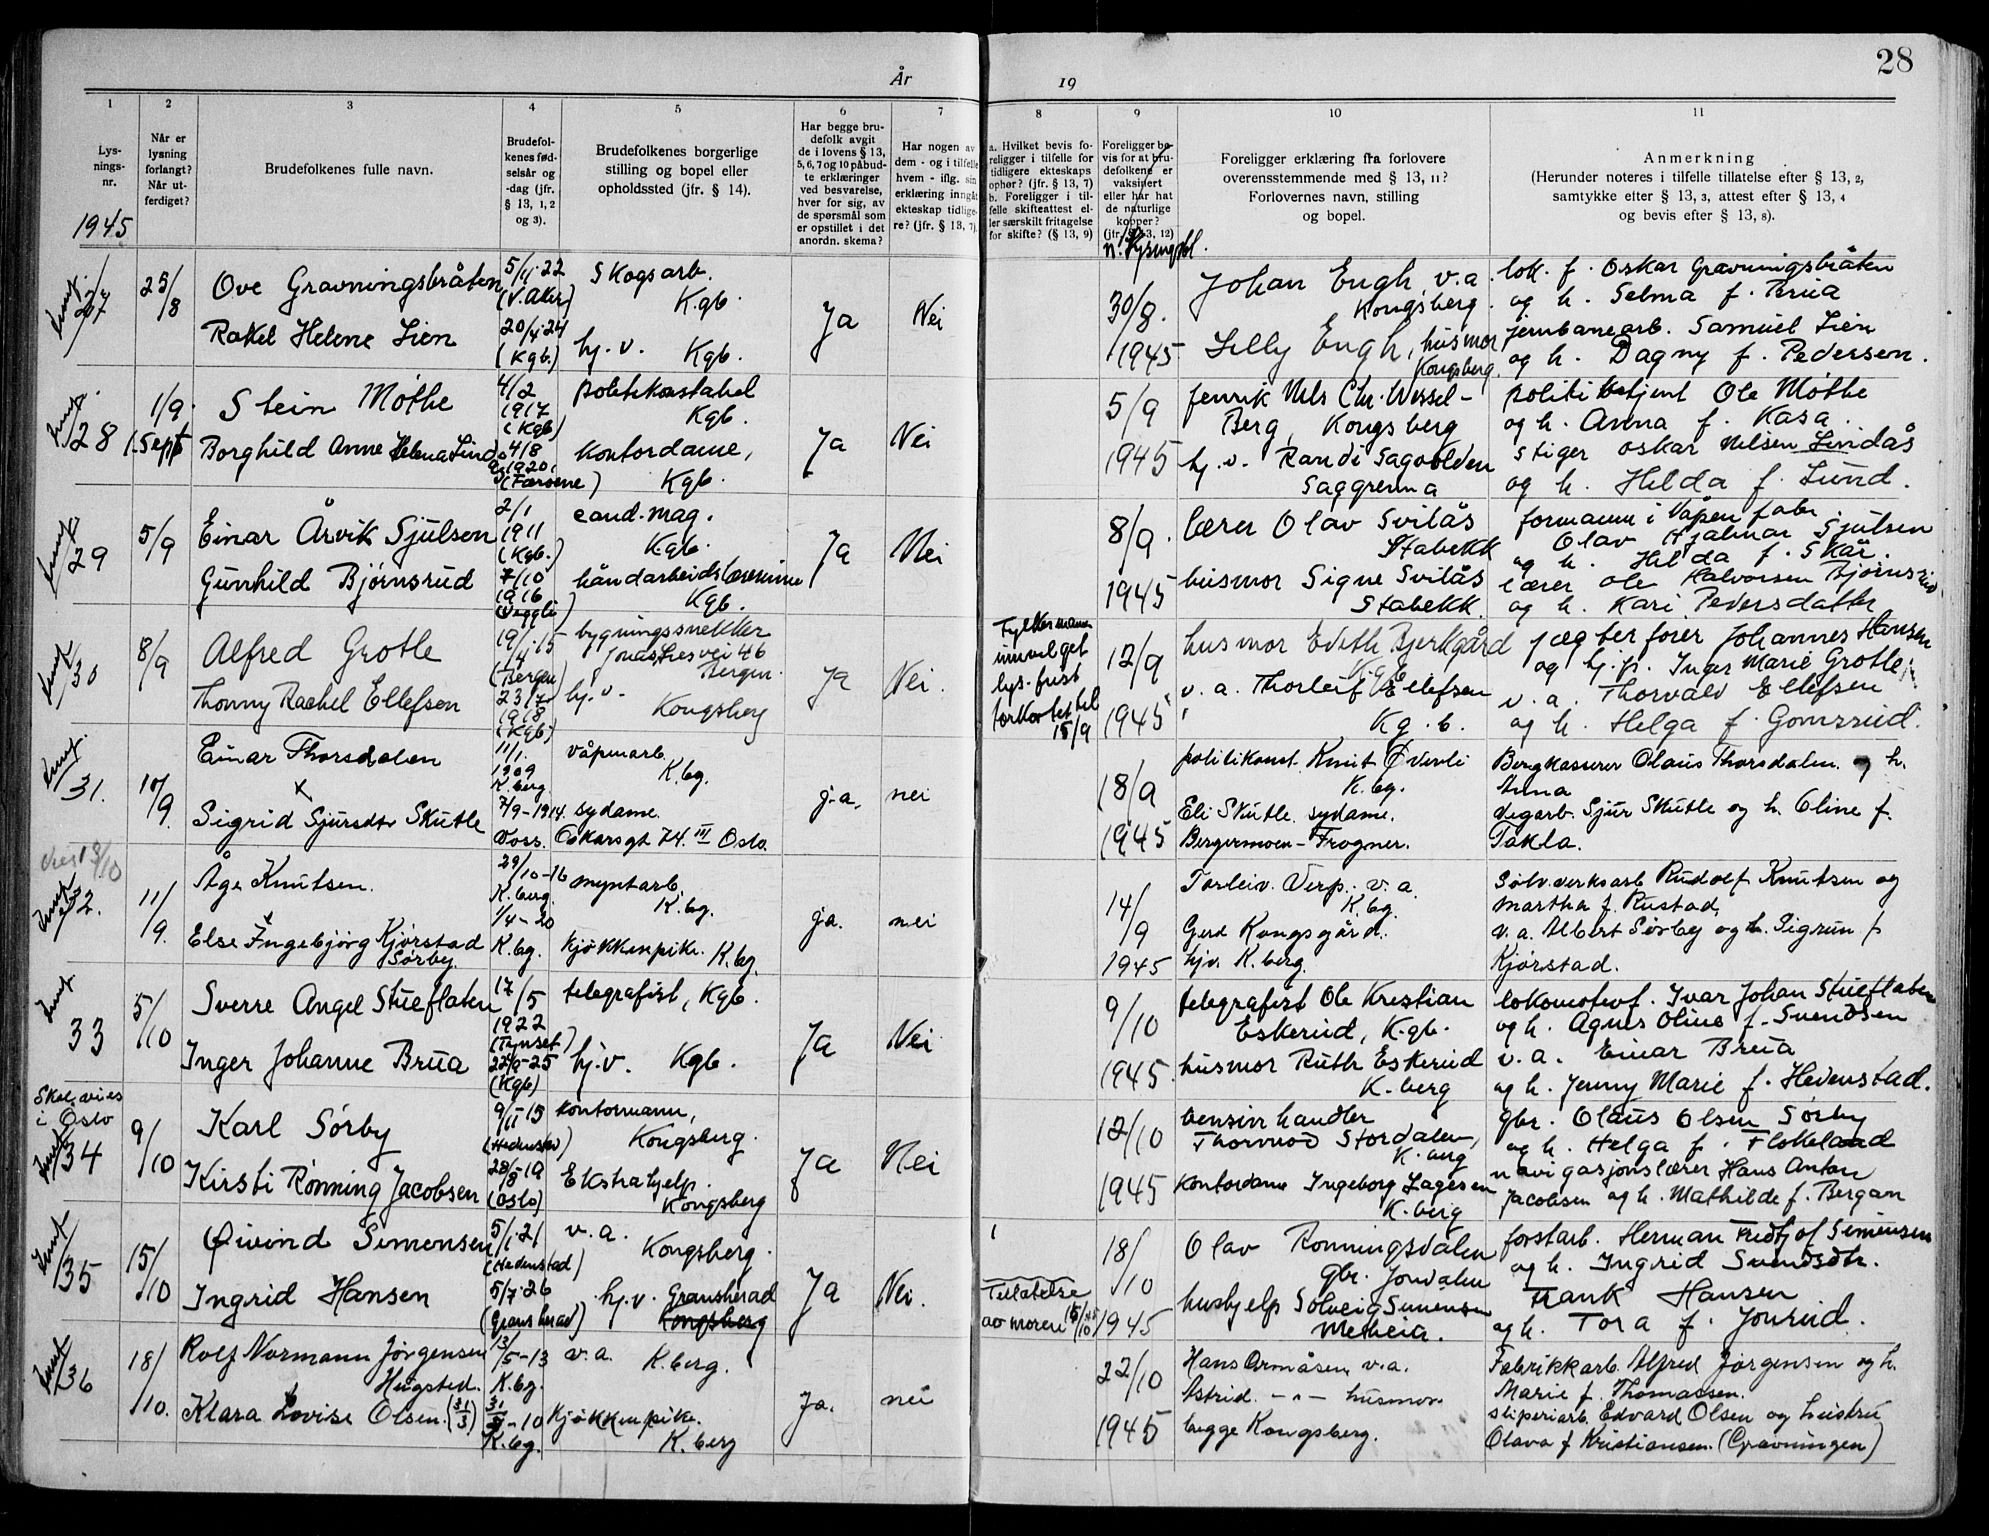 28
År
19
1
2
3
4
5
6
7
8
9
10
11
Lys-
nings-
nr.
Når er
lysning
forlangt?
Når ut-
ferdiget?
Brudefolkenes fulle navn.
Brudefol-
kenes fød-
selsår og
-dag (jfr.
§ 13, 1, 2
og 3).
Brudefolkenes borgerlige
stilling og bopel eller
opholdssted (jfr. § 14).
Har begge bru-
defolk avgit
de i lovens § 13,
5, 6, 7 og 10 påbud-
te erklæringer
ved besvarelse,
hver for sig, av
de spørsmål som
er opstillet i det
anordn. skema?
Har nogen av
dem - og i tilfelle
hvem - iflg. sin
erklæring inngåt
ekteskap tidlige-
re? (jfr. § 13, 7).
a. Hvilket bevis fo-
religger i tilfelle for
tidligere ekteskaps
ophør? (jfr. § 13, 7)
b. Foreligger i til-
felle skifteattest el-
ler særskilt fritagelse
for skifte? (§ 13, 9)
Foreligger be-
vis for at bru-
defolkene er
vaksinert
eller har hat
de naturlige
kopper?
(jfr. § 13, 12)
Foreligger erklæring fra forlovere
overensstemmende med § 13, 11?
Forlovernes navn, stilling
og bopel.
Anmerkning
(Herunder noteres i tilfelle tillatelse efter § 13, 2,
samtykke efter § 13, 3, attest efter § 13, 4
og bevis efter § 13, 8).
1945
27
25/8
Ove Gravningsbråten
5/4.22
(V. Aker)
Skogsarb.
Kgb.
Rakel Helene Lien
20/4.24
(Kgb.)
hj.v. Kgb.
Ja
Nei
30/8.
1945
Johan Engh, v.a.
Kongsberg.
Lilly Engh, husmor
Kongsberg.
lok. f. Oskar Gravningsbråten
og h. Selma f. Brua
jernbanearb. Samuel Lien
og h. Dagny f. Pedersen.
28
1/9.
1. Sept
Stein Møthe
4/2
1917
(Kgb)
politikonstabel
Kgb.
Borghild Anne Helena Lindås
4/8
1920
(Færøene)
kontordame,
Kgb.
Ja
Nei
5/9
1945
fenrik Nils Chr. Wessel-
Berg, Kongsberg
hj.v. Randi Sagvolden
Saggrenna
politibetjent Ole Møthe
og h. Anna f. Kasa.
Stiger Oskar Nilsen Lindås
og h. Hilda f. Lund.
29
5/9
Einar Årvik Sjulsen
2/1
1911
(Kgb.)
cand. mag.
Kgb.
Gunhild Bjørnsrud
7/10
1916
(Veggli)
håndarbeidslærerinne
Kgb.
Ja
Nei
8/9.
1945
lærer Olav Svilås
Stabekk
husmor Signe Svilås
Stabekk
formann i Våpenfabr.
Olav Hjalmar Sjulsen
og h. Hilda f. Skår.
lærer Ole Halvorsen Bjørnsrud
og h. Kari Pedersdatter
30
8/9
Alfred Grotle
19/4.15
(Bergen)
bygningssnekker
Jonas Lies vei 46
Bergen.
Thonny Rachel Ellefsen
23/7
1918
(Kgb)
hj.v.
Kongsberg
Ja
Nei.
Fylkesmannen
innvilget
lys. frist
forkortet til
15/9
12/9
1945
husmor Edith Bjerkgård
Kgb
v.a. Thorleif Ellefsen
Kg.b.
jægterfører Johannes Hansen
og hj.p. Inga Marie Grotle
v.a. Thorvald Ellefsen
og h. Helga f. Gomsrud.
31.
10/9.
Einar Thorsdalen
11/1.
1909
K.berg
våpenarb.
K.bg.
Sigrid Sjursdtr Skutle
7/9-1914.
Voss.
sydame.
Oskarsgt. 74. III Oslo.
ja.
nei
18/9
1945
politikonst. Knut Øverli
K.bg.
Eli Skutle. sydame.
Bergermoen - Frogner.
Bergkasserer Olaus Thorsdalen og h.
Anna
Vegarb. Sjur Skutle og h. Oline f.
Takla.
13/10
32.
11/9.
Åge Knutsen.
29/10-16
K.berg.
myntarb.
K.bg.
Else Ingebjørg Kjørstad
Sørby.
1/4-20
K.bg.
kjøkkenpike. K.bg.
ja.
nei
14/9
1945
Torleiv. Verp. v.a.
K.bg.
Gerd Kongsgård.
hjv. K.berg.
Sølvverksarb Rudolf Knutsen og
Martha f. Rustad.
v.a. Albert Sørby og h. Sigrun f
Kjørstad.
33
5/10
Sverre Angel Stueflaten
17/5
1922
(Tynset)
telegrafist, Kgb.
Inger Johanne Brua
22/9-25
(Kgb)
hj.v. Kgb.
Ja
Nei
9/10
1945
telegrafist Ole Kristian
Eskerud, Kgb.
husmor Ruth Eskerud
K.berg
lokomotivf. Ivar Johan Stueflaten
og h. Agnes Oline f. Svendsen
v.a. Einar Brua
og h. Jenny Marie f. Hedenstad.
Skal vies
i Oslo
34
9/10
Karl Sørby
9/11-15
(Hedenstad)
kontormann,
Kongsberg.
Kirsti Rønning Jacobsen
28/8-19
(Oslo)
Ekstrahjelp.
Kongsberg
Ja
Nei
12/10
1945
bensinhandler
Thormod Stordalen,
K.berg
kontordame Ingeborg Lagesen
K.berg
gbr. Olaus Olsen Sørby
og h. Helga f. Flokeland
navigasjonslærer Hans Anton
Jacobsen og h. Mathilde f. Bergan
35
15/10
Øivind Simensen
5/1.21
(Hedenstad)
v.a.
Kongsberg.
Ingrid Hansen
5/7.26
(Gransherad)
hj.v. Gransherad
Kongsberg
Ja
Nei.
Tillatelse
av moren 15/10 45
18/10
1945
Olav Rønningsdalen
gbr. Jondalen
hushjelp Solveig Simensen
Meheia.
forstarb. Herman Fridtjof Simensen
og h. Ingrid Svendsdtr.
Frank Hansen
og h. Tora f. Jonrud.
36
18/10.
Rolf Normann Jørgensen
Hugsted.
13/5-13
K.bg.
v.a. K.berg.
Klara Lovise Olsen. (31/3)
31/3-10
K.bg.
kjøkkenpike.
K.berg
Ja.
nei
22/10
1945
Hans Ormåsen v.a.
Astrid. - " - husmor.
begge Kongsberg.
Fabrikkarb. Alfred Jørgensen og h.
Marie f. Thomassen.
sliperiarb. Edvard Olsen og hustru
Olava f Kristiansen. (Gravningen)